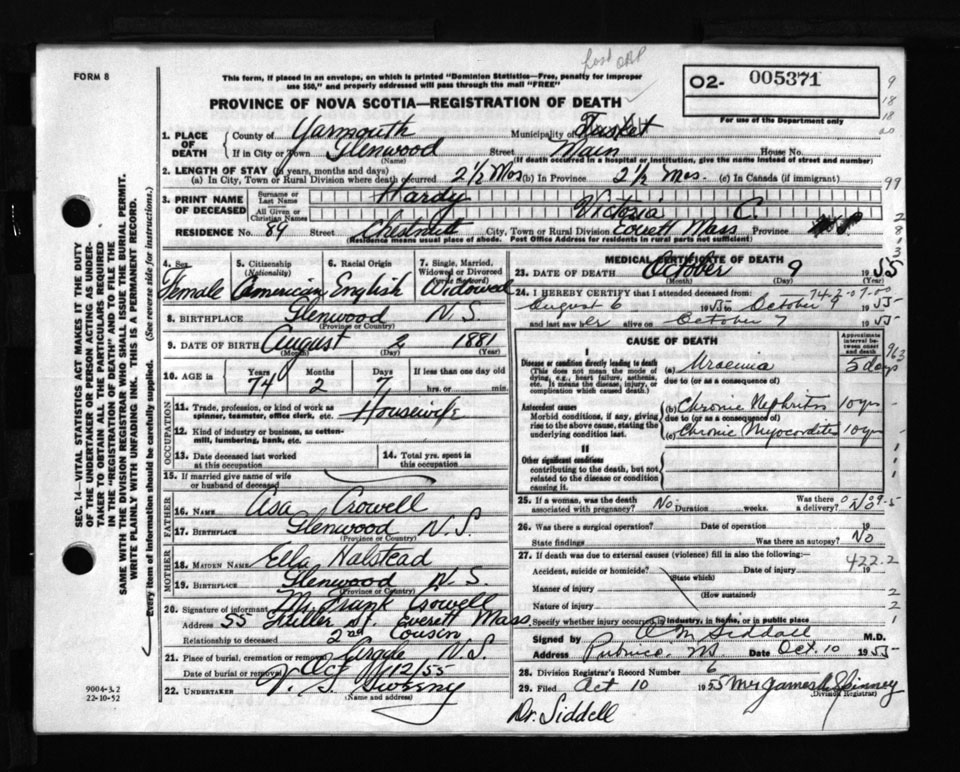 FORM 8
Lost
This form, if placed in an envelope, on which is printed "Dominion Statistics—Free, penalty for improper
use $50," and properly addressed will pass through the mail "FREE"
O2- 005371
For use of the Department only
PROVINCE OF NOVA SCOTIA—REGISTRATION OF DEATH
1. PLACE OF DEATH County of Yarmouth Municipality of Tusket
If in City or Town Glenwood (Name) Street Main House No.
(If death occurred in a hospital or institution, give the name instead of street and number)
2. LENGTH OF STAY (in years, months and days)
(a) In City, Town or Rural Division where death occurred 2 1/2 Mos (b) In Province 2 1/2 Mos. (c) In Canada (if immigrant)
3. PRINT NAME OF DECEASED Surname or Last Name Hardy
All Given or Christian Names Victoria C.
RESIDENCE No. 89 Street Chestnut City, Town or Rural Division Mass Province
(Residence means usual place of abode. Post Office Address for residents in rural parts not sufficient)
4. Sex Female
5. Citizenship (Nationality) American
6. Racial Origin English
7. Single, Married, Widowed or Divorced Widowed
8. BIRTHPLACE Glenwood N.S.
(Province or Country)
9. DATE OF BIRTH August 2 1881
(Month) (Day) (Year)
10. AGE Years 74 Months 2 Days 7 If less than one day old hrs. or min.
OCCUPATION
11. Trade, profession, or kind of work as spinner, teamster, office clerk, etc. Housewife
12. Kind of industry or business, as cotton-mill, lumbering, bank, etc.
13. Date deceased last worked at this occupation
14. Total yrs. spent in this occupation
15. If married give name of wife or husband of deceased
FATHER
16. NAME Asa Crowell
17. BIRTHPLACE Glenwood N.S.
(Province or Country)
MOTHER
18. MAIDEN NAME Ella Halstead
19. BIRTHPLACE Glenwood N.S.
(Province or Country)
20. Signature of informant Mr. Frank Crowell
Address 55 St. Everett Mass.
Relationship to deceased 2nd Cousin
21. Place of burial, cremation or removal Argyle N.S.
Date of burial or removal Oct 12/55
22. UNDERTAKER V. S. Sweeny
(Name and address)
MEDICAL CERTIFICATE OF DEATH
23. DATE OF DEATH October 9 1955
(Month) (Day)
24. I HEREBY CERTIFY that I attended deceased from:
August 6 1955 to October 9 1955
and last saw her alive on October 7 1955
CAUSE OF DEATH
Approximate interval between onset and death
I
Disease or condition directly leading to death
(This does not mean the mode of dying, e.g., heart failure, asthenia, etc. It means the disease, injury, or complication which caused death.)
(a) Uraemia 5 days
due to (or as a consequence of)
Antecedent causes
Morbid conditions, if any, giving rise to the above cause, stating the underlying condition last.
(b) Chronic Nephritis 10 yrs
due to (or as a consequence of)
(c) Chronic Myocarditis 10 yrs
II
Other significant conditions contributing to the death, but not related to the disease or condition causing it.
25. If a woman, was the death associated with pregnancy? No Duration weeks. Was there a delivery? No
26. Was there a surgical operation? Date of operation 19
State findings Was there an autopsy? No
27. If death was due to external causes (violence) fill in also the following:—
Accident, suicide or homicide? (State which) Date of injury 19
422.2
Manner of injury (How sustained)
Nature of injury
Specify whether injury occurred in industry, in home, or in public place
Signed by O M Siddall M.D.
Address Pubnico, N.S. Date Oct. 10 1955
28. Division Registrar's Record Number 6
29. Filed Oct 10 1955 Mrs James
(Division Registrar)
Dr. Siddell
SEC. 14—VITAL STATISTICS ACT MAKES IT THE DUTY
OF THE UNDERTAKER OR PERSON ACTING AS UNDER-
TAKER TO OBTAIN ALL THE PARTICULARS REQUIRED
IN THE "REGISTRATION OF DEATH" AND TO FILE THE
SAME WITH THE DIVISION REGISTRAR WHO SHALL ISSUE THE BURIAL PERMIT.
WRITE PLAINLY WITH UNFADING INK. THIS IS A PERMANENT RECORD.
Every item of information should be carefully supplied. (See reverse side for instructions.)
9004-3.2
22-10-52